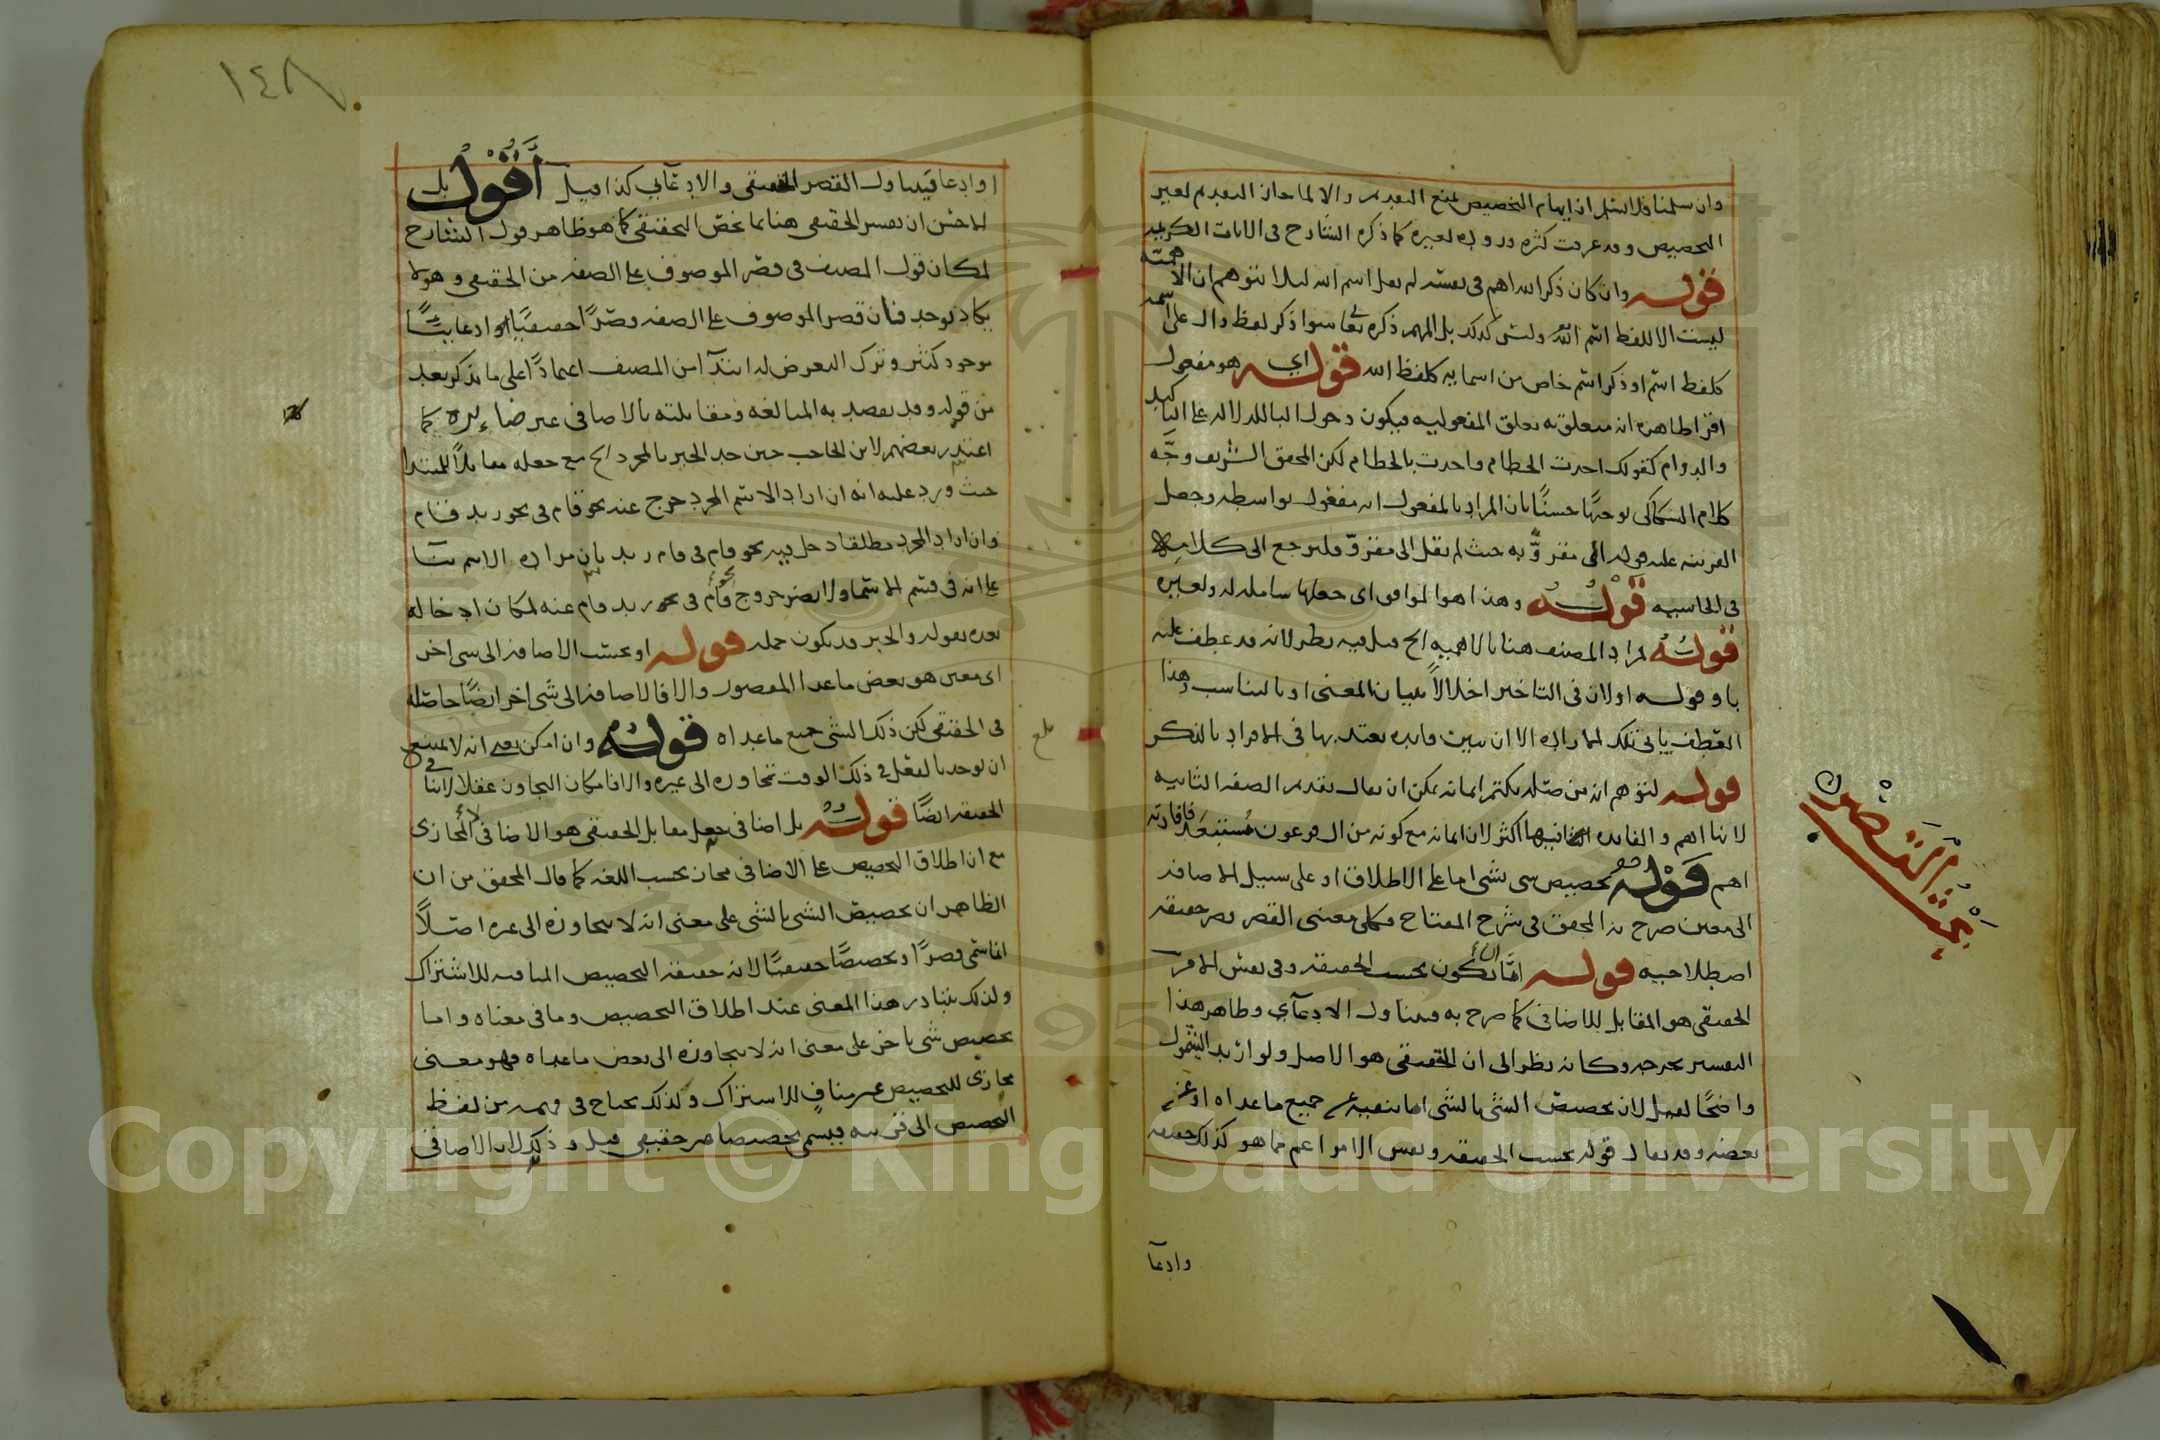 وان سلمنا فلا نسلم ان ايهام التخصيص يمنع التقديم والا لما جاز التقديم لغير
التخصيص وقد عرفت كثرة وروده لغيره كما ذكره الشارح في الايات الكريمة
قوله وان كان ذكر الله اهم في نفسه لم يقل اسم الله ليلا يتوهم ان الاهمية
ليست الا للفظ اسم الله وليس كذلك بل المهم ذكره تعالى سوا ذكر لفظ دال على اسمه
كلفظ اسم او ذكر اسم خاص من اسمايه كلفظ الله قوله اي هو مفعول
اقرا ظاهره انه متعلق به تعلق المفعولية فيكون دخول البا للدلالة على التاكيد
والدوام كقولك اخذت الخطام واخذت بالخطام لكن المحقق الشريف وجّه
كلام السكاكي توجيها حسنًا بان المراد بالمفعول انه مفعول بواسطة وجعل
القرينة عليه قوله الى مقروّ به حيث لم يقل الى مقروّ فليرجع الى كلامه
في الحاشية قوله وهذا هو الموافق اي جعلها شاملة له ولغيره
قوله مراد المصنف هنا بالاهمية الخ قيل فيه نظر لانه قد عطف عليه
باو قوله اولان في التاخير اخلالاً ببيان المعنى او بالتناسب وهذا
العطف يابى تلك الارادة الا ان يبين فايدة يعتد بها في الافراد بالذكر
قوله لتوهم انه من صلة يكتم ايمانه يمكن ان يقال تقديم الصفة الثانية
لانها اهم والفايدة اكثر لان ايمانه مع كونه من ال فرعون مستبعد فافادته
اهم قوله تخصيص شي بشي اما على الاطلاق او على سبيل الاضافة
الى معين صرح به المحقق في شرح المفتاح فكلى معنى القصر قصر حقيقة
اصطلاحية قوله اما ان يكون بحسب الحقيقة وفي نفس الامر
الحقيقي هو المقابل للاضافي كما صرح به فيتناول الادعآي وظاهر هذا
التفسير يخرجه وكانه نظر الى ان الحقيقي هو الاصل ولو اريد الشمول
واضحًا لقيل لان تخصيص الشي بالشي اما بنفيه عن جميع ما عداه او عن
بعضه وقد يقال قوله بحسب الحقيقة ونفس الامر اعم مما هو كذلك حقيقة
وادعآ
بحث القصر
١٤٨
او ادعا فيتناول القصر الحقيقي والادعآيي كذا قيل اقول بل
الاحسن ان يفسر الحقيقي هنا بما يخص التحقيقي كما هو ظاهر قول الشارح
لمكان قول المصنف في قصر الموصوف على الصفة من الحقيقي وهو لا
يكاد يوجد فان قصر الموصوف على الصفة قصرًا حقيقيًا ادعاييًا
موجود كثير وترك التعرض له ابتدآ من المصنف اعتمادًا على ما يذكر بعد
من قوله وقد يقصد به المبالغة ومقابلته بالاضافي غير ضايره كما
اعتذر بعضهم لابن الحاجب حين حد الخبر بالمجرد الخ مع جعله مقابلاً للمبتدا
حيث ورد عليه انه ان اراد الاسم المجرد خرج عنه نحو قام في نحو زيد قام
وان اراد المجرد مطلقا دخل فيه نحو قام في قام زيد بان مراده الاسم بنآ
على انه في قسم الاسما ولا يضر خروج نحو قام في نحو زيد قام عنه لمكان ادخاله
بعده بقوله والخبر قد يكون جملة قوله او بحسب الاضافة الى شي اخر
اي معين هو بعض ما عدا المقصور والا فالاضافة الى شي اخر ايضًا حاصلة
في الحقيقي لكن ذلك الشي جميع ما عداه قوله وان امكن بعد انه لا يمتنع
ان يوجد بالفعل في ذلك الوقت تجاوزه الى غيره والا فامكان التجاوز عقلا لا ينافي
الحقيقة ايضًا قوله بل اضافي جعل مقابل الحقيقي هو الاضافي لا المجازي
مع ان اطلاق التخصيص على الاضافي مجاز بحسب اللغة كما قال المحقق من ان
الظاهر ان تخصيص الشي بالشي على معنى انه لا يتجاوزه الى غيره اصلاً
انما سمى قصرًا او تخصيصًا حقيقيًا لانه حقيقة التخصيص المنافية للاشتراك
ولذلك يتبادر هذا المعنى عند اطلاق التخصيص وما في معناه واما
تخصيص شي باخر على معنى انه لا يتجاوزه الى بعض ما عداه فهو معنى
مجازي للتخصيص غير منافٍ للاشتراك ولذلك يحتاج في فهمه من لفظ
التخصيص الى قرينة فيسمى تخصيصا غير حقيقي قيل وذلك لان الاضافي
بلغ
Copyright © King Saud University